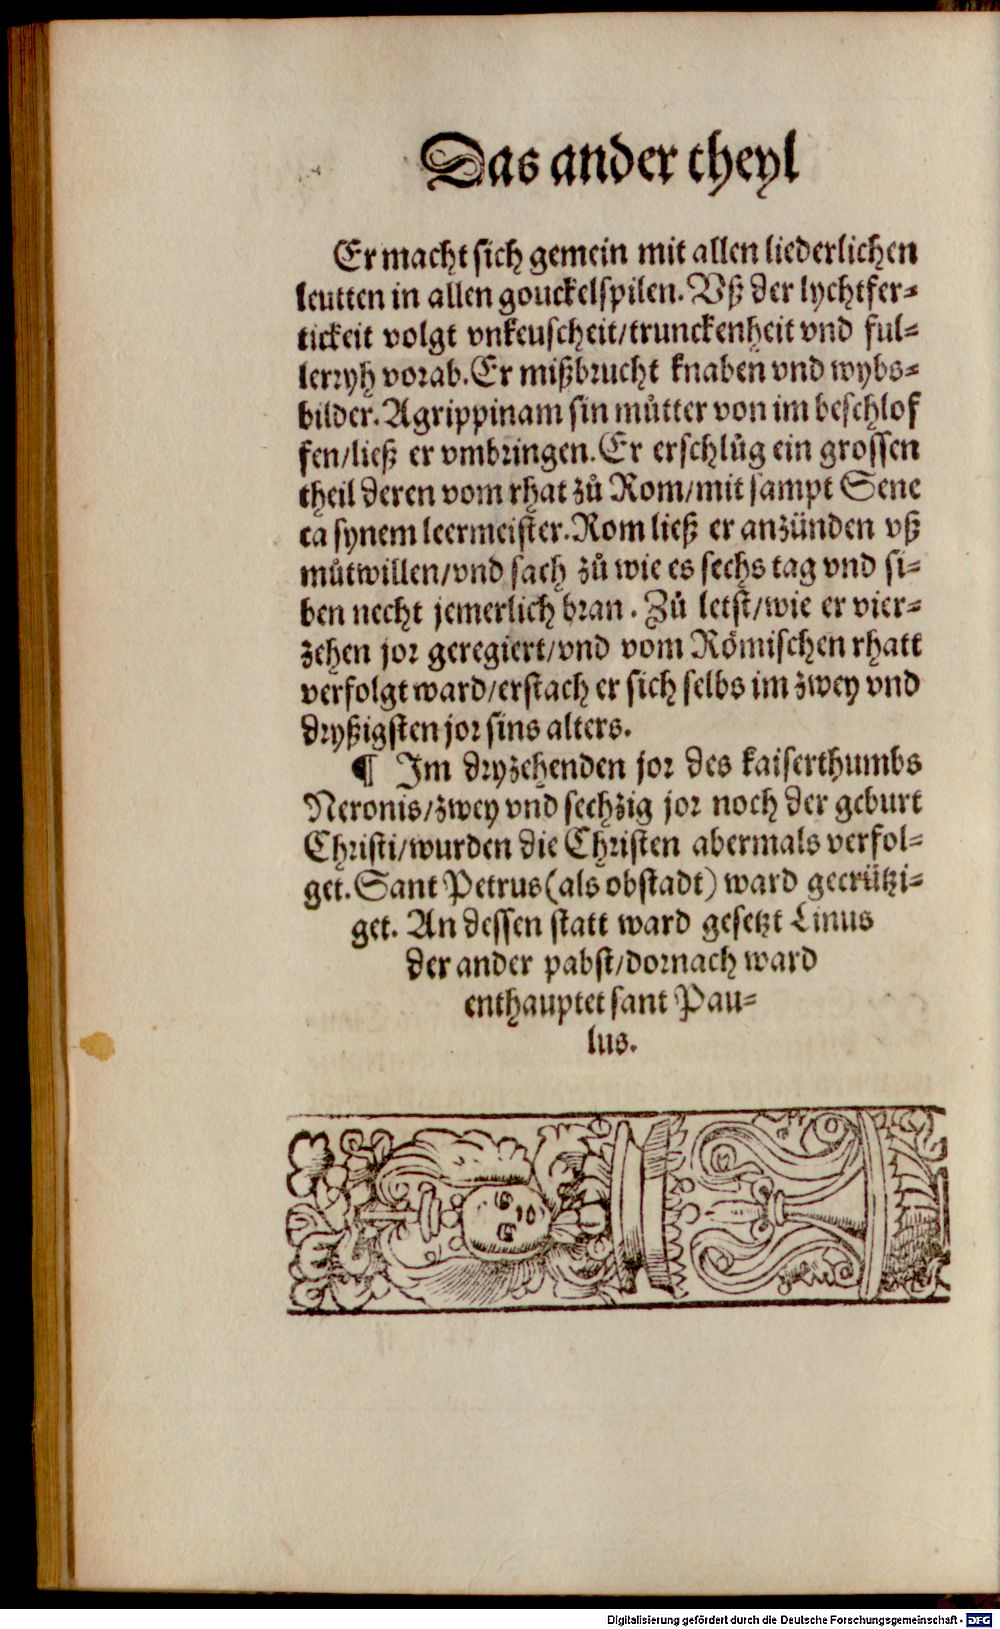 Das ander theyl
Er macht sich gemein mit allen liederlichen
leutten in allen gouckelspilen. Vß der lychtfer-
tickeit volgt vnkeuscheit/trunckenheit vnd ful-
lerryh vorab. Er mißbrucht knaben vnd wybs-
bilder. Agrippinam sin můtter von im beschlof
fen/ließ er vmbringen. Er erschlůg ein grossen
theil deren vom rhat zů Rom/mit sampt Sene
ca synem leermeister. Rom ließ er anzünden vß
můtwillen/vnd sach zů wie es sechs tag vnd si-
ben necht jemerlich bran. Zů letst/wie er vier-
zehen jor geregiert/vnd vom Römischen rhatt
verfolgt ward/erstach er sich selbs im zwey vnd
dryßigsten jor sins alters.
¶ Im dryzehenden jor des kaiserthumbs
Neronis/zwey vnd sechzig jor noch der geburt
Christi/wurden die Christen abermals verfol-
get. Sant Petrus (als obstadt) ward gecrützi-
get. An dessen statt ward gesetzt Linus
der ander pabst/dornach ward
enthauptet sant Pau-
lus.
Digitalisierung gefördert durch die Deutsche Forschungsgemeinschaft - DFG